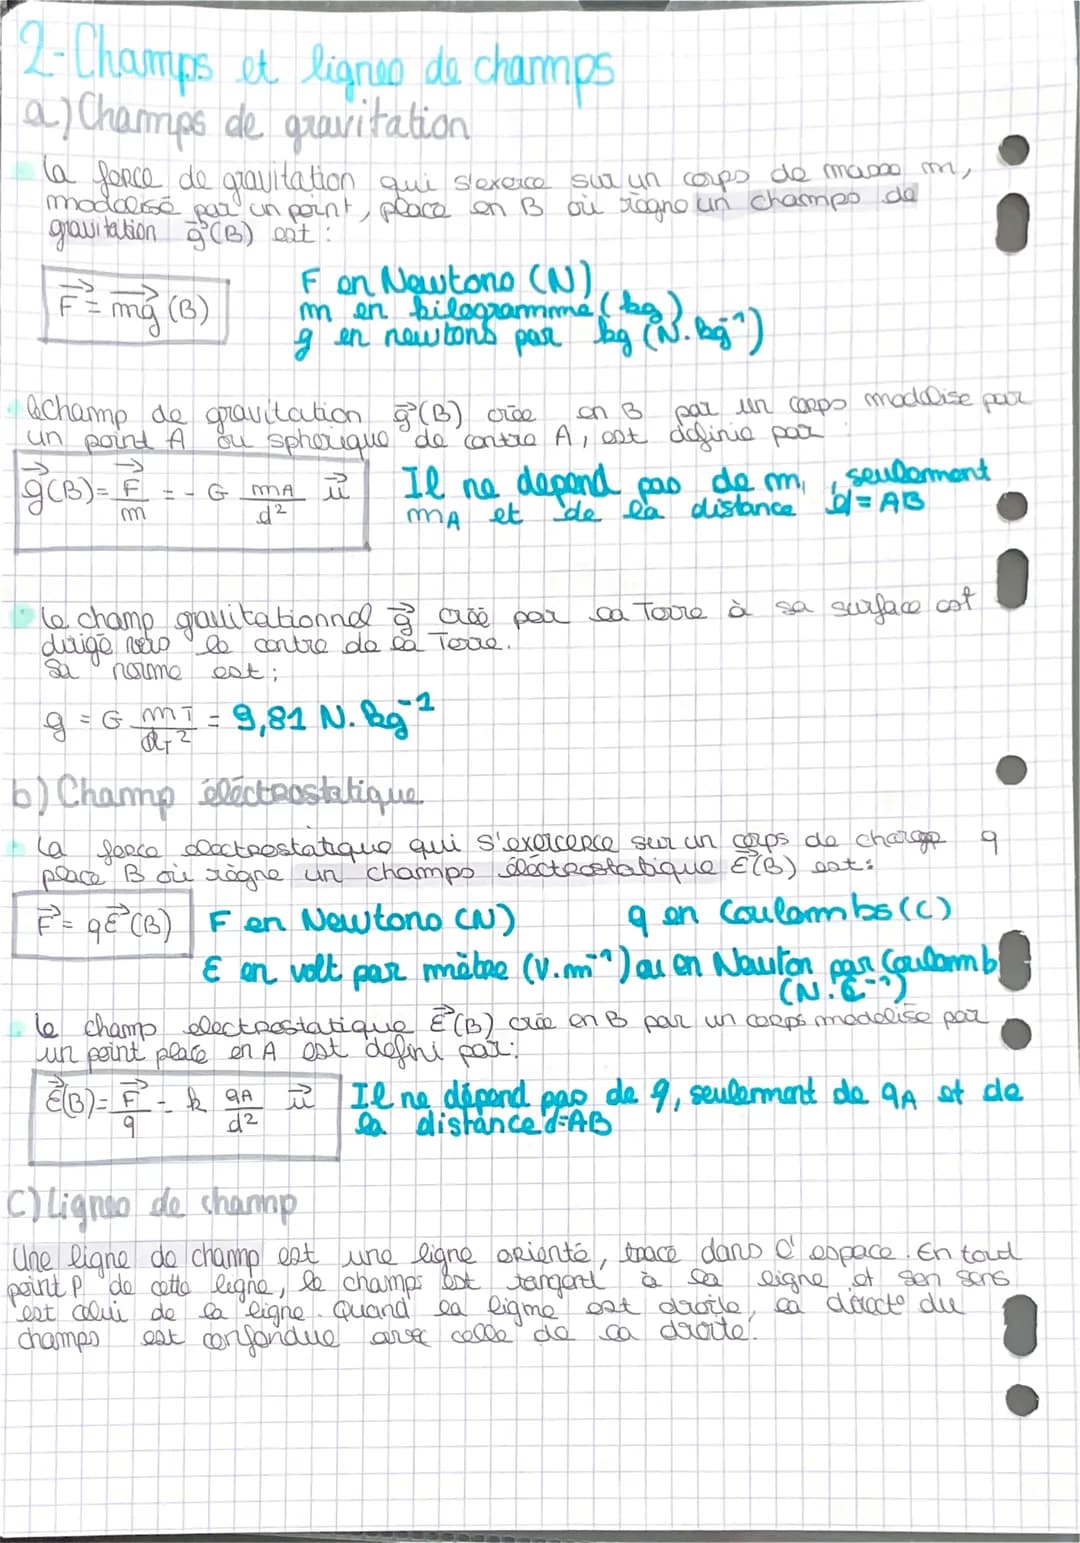 2-Champs et lignes de champs
a) Champs de gravitation
la force de gravitation qui s'exerce sur un corps de masse m,
modélisé par un point, placé en B où règne un champs de
gravitation g⃗(B) est :
F⃗ = mg⃗ (B)
F en Newtons (N)
m en kilogramme (kg)
g en newtons par kg (N.kg⁻¹)
Le champ de gravitation g⃗(B) crée en B par un corps modélise par
un point A ou spherique de centre A, est définie par
g⃗(B) = F⃗/m = - G mA/d² u⃗
Il ne depend pas de m, seulement
mA et de la distance d = AB
Le champ gravitationnel g⃗ créé par la Terre à sa surface est
dirigé vers le centre de la Terre.
Sa norme est ;
g = G mT/dT² = 9,81 N.kg⁻¹
b) Champ éléctrostatique
La force electrostatique qui s'exercerce sur un corps de charge q
place B où règne un champs éléctrostatique E⃗(B) est :
F⃗ = qE⃗(B)
F en Newtons (N) q en Coulombs (C)
E en volt par mètre (V.m⁻¹) ou en Newton par Coulomb
(N.C⁻¹)
le champ electrostatique E⃗(B) crée en B par un corps modelise par
un point place en A est defini par :
E⃗(B) = F⃗/q = k qA/d² u⃗
Il ne dépend pas de q, seulement de qA et de
la distance d=AB
C) Lignes de champ
Une ligne de champ est une ligne orienté, tracé dans l'espace. En tout
point P de cette ligne, le champs est tangent à la ligne et son sens
est celui de la ligne. Quand la ligne est droite, la directe du
champs est confondue avec celle de la droite.